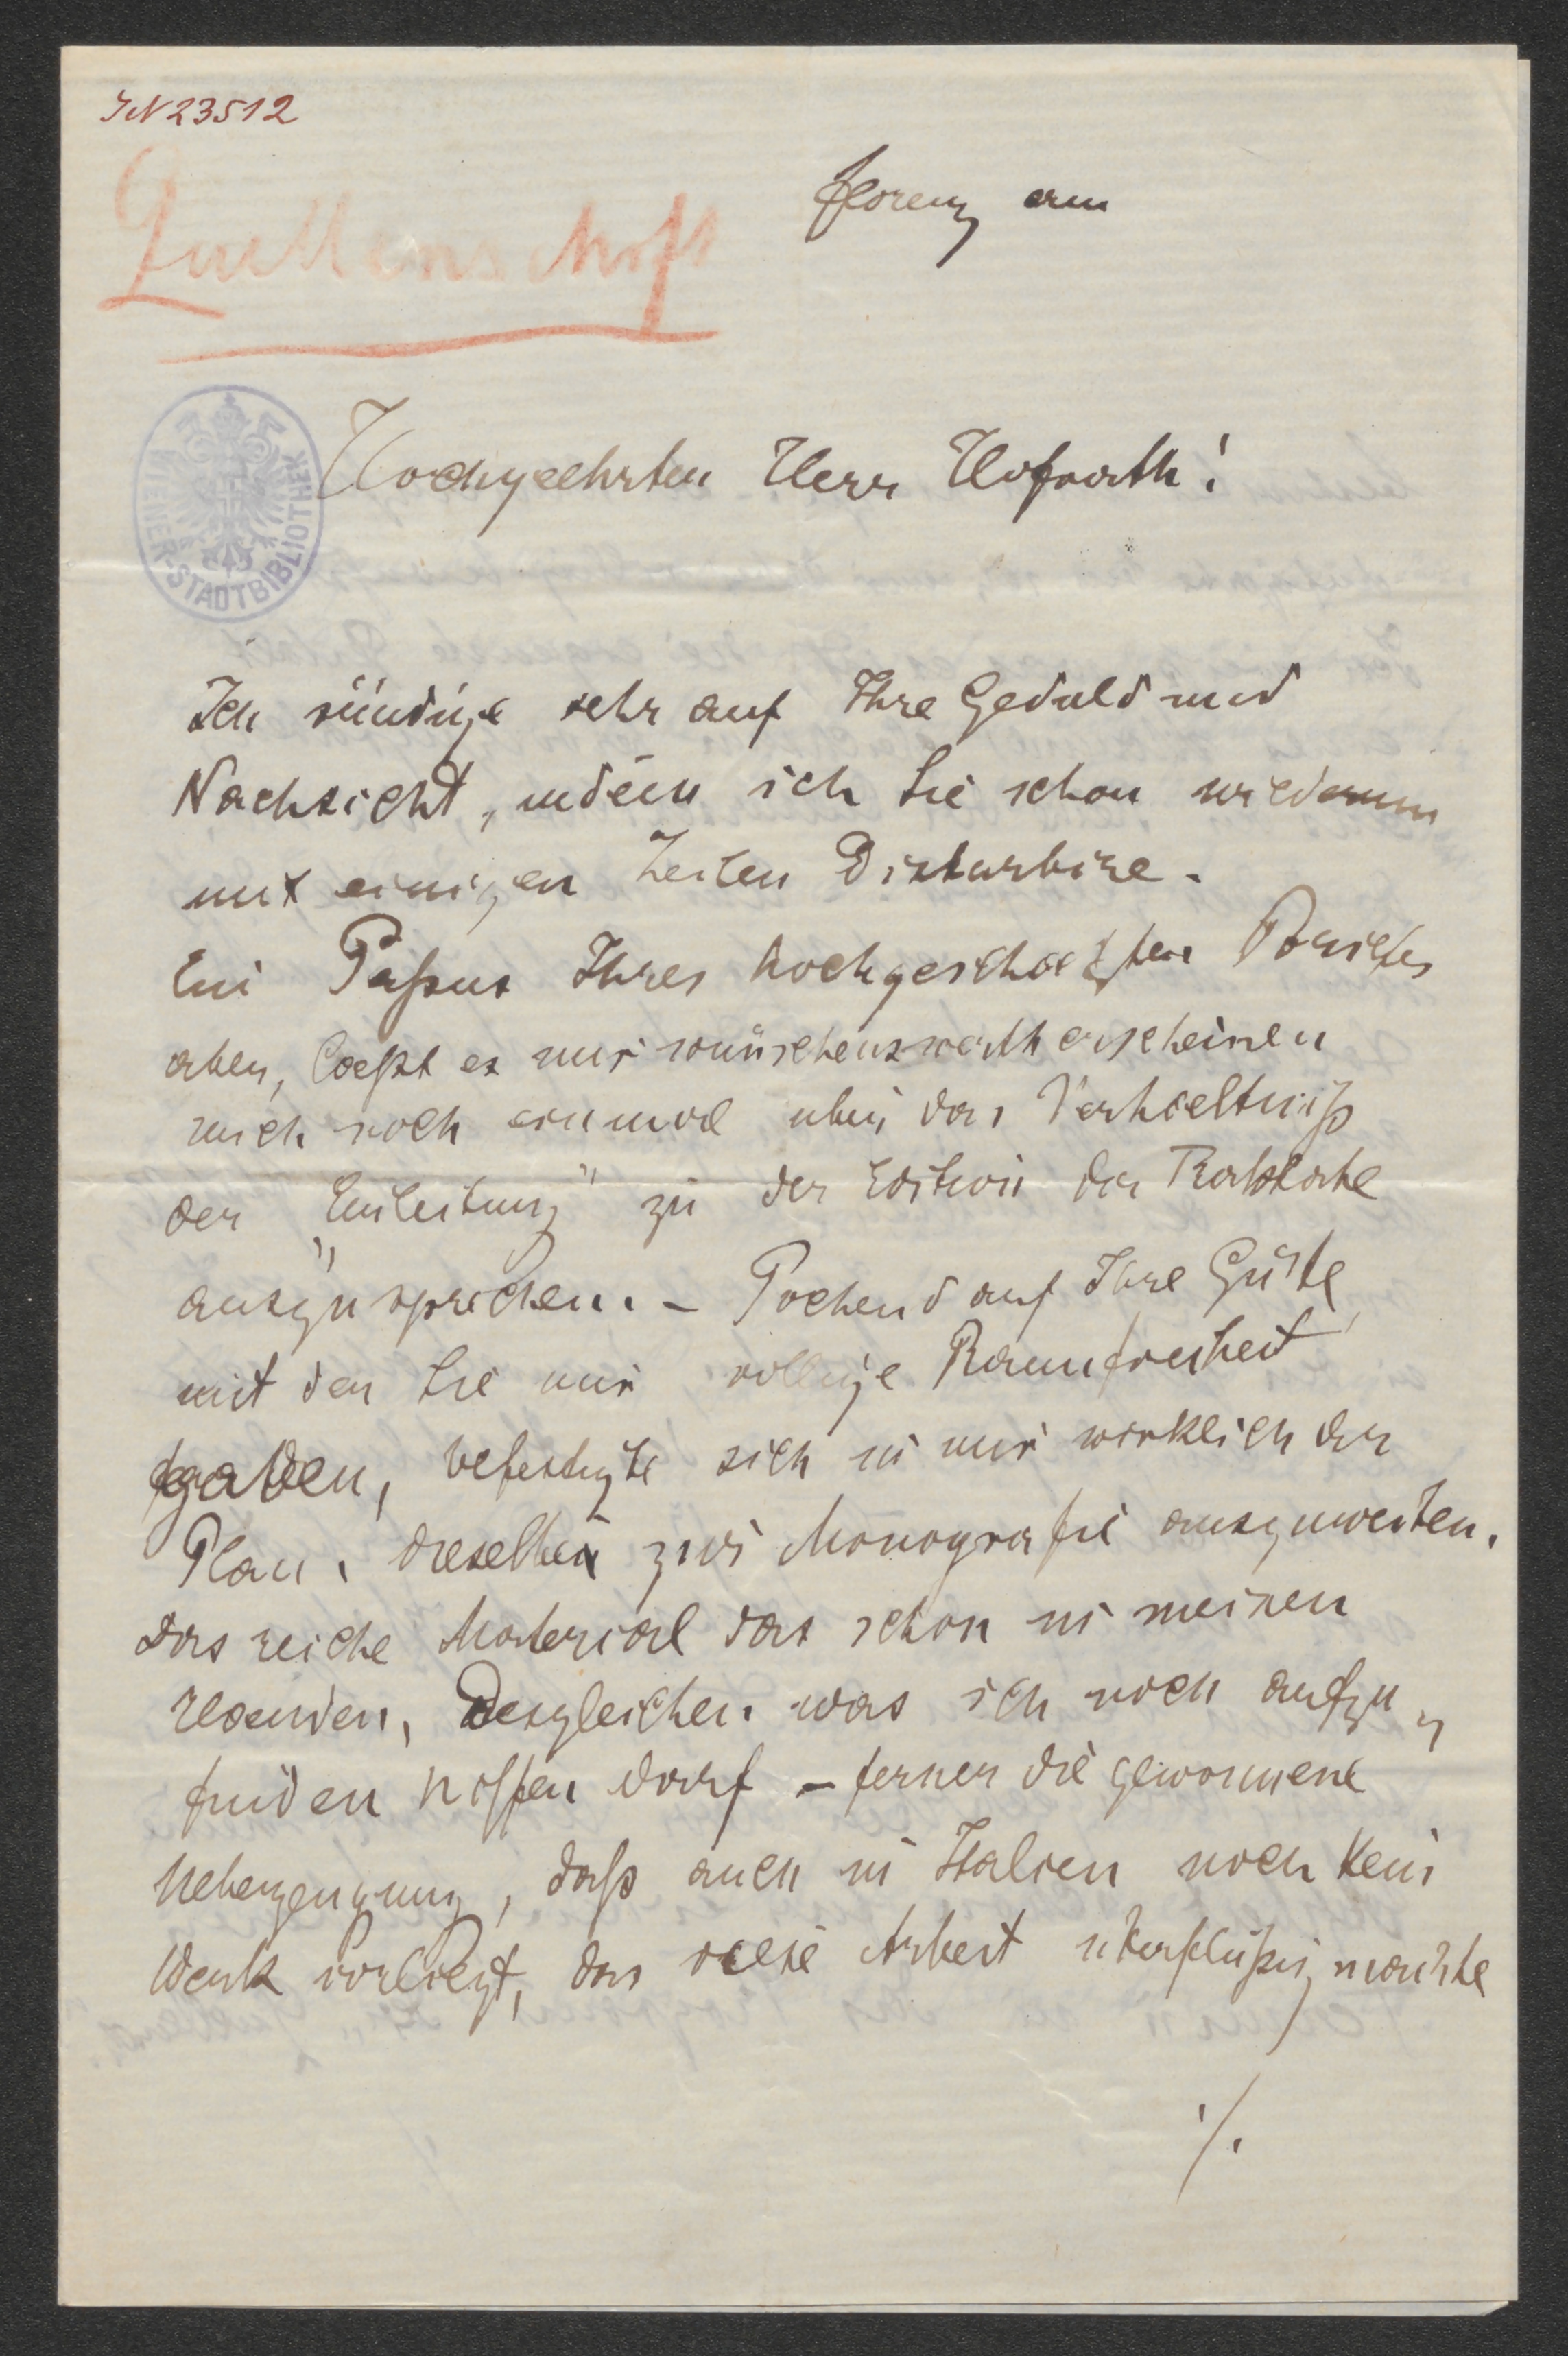 IN 23512
Quellenschrift
Florenz am
WIENER-STADTBIBLIOTHEK
Hochgeehrter Herr Hofrath!
Ich sündige sehr auf Ihre Geduld und
Nachsicht, indem ich Sie schon wiederum
mit einigen Zeilen Disturbire.
Ein Paßus Ihres hochgeschaetzten Briefes
aber, laeßt es mir wünschenswerth erscheinen
mich noch einmal über das Verhaeltniß
der „Einleitung" zu der Edition der Traktate
auszusprechen. – Pochend auf Ihre Güte,
mit der Sie mir völlige Raumfreiheit
gaben, befestigte sich in mir wirklich der
Plan, dieselbe zur Monografie auszuweiten.
Das reiche Material das schon in meinen
Haenden, Desgleichen was ich noch aufzu„
finden hoffen darf – ferner die gewonnene
Ueberzeugung, daß auch in Italien noch kein
Werk vorliegt, das diese Arbeit überflüßig machte
./.